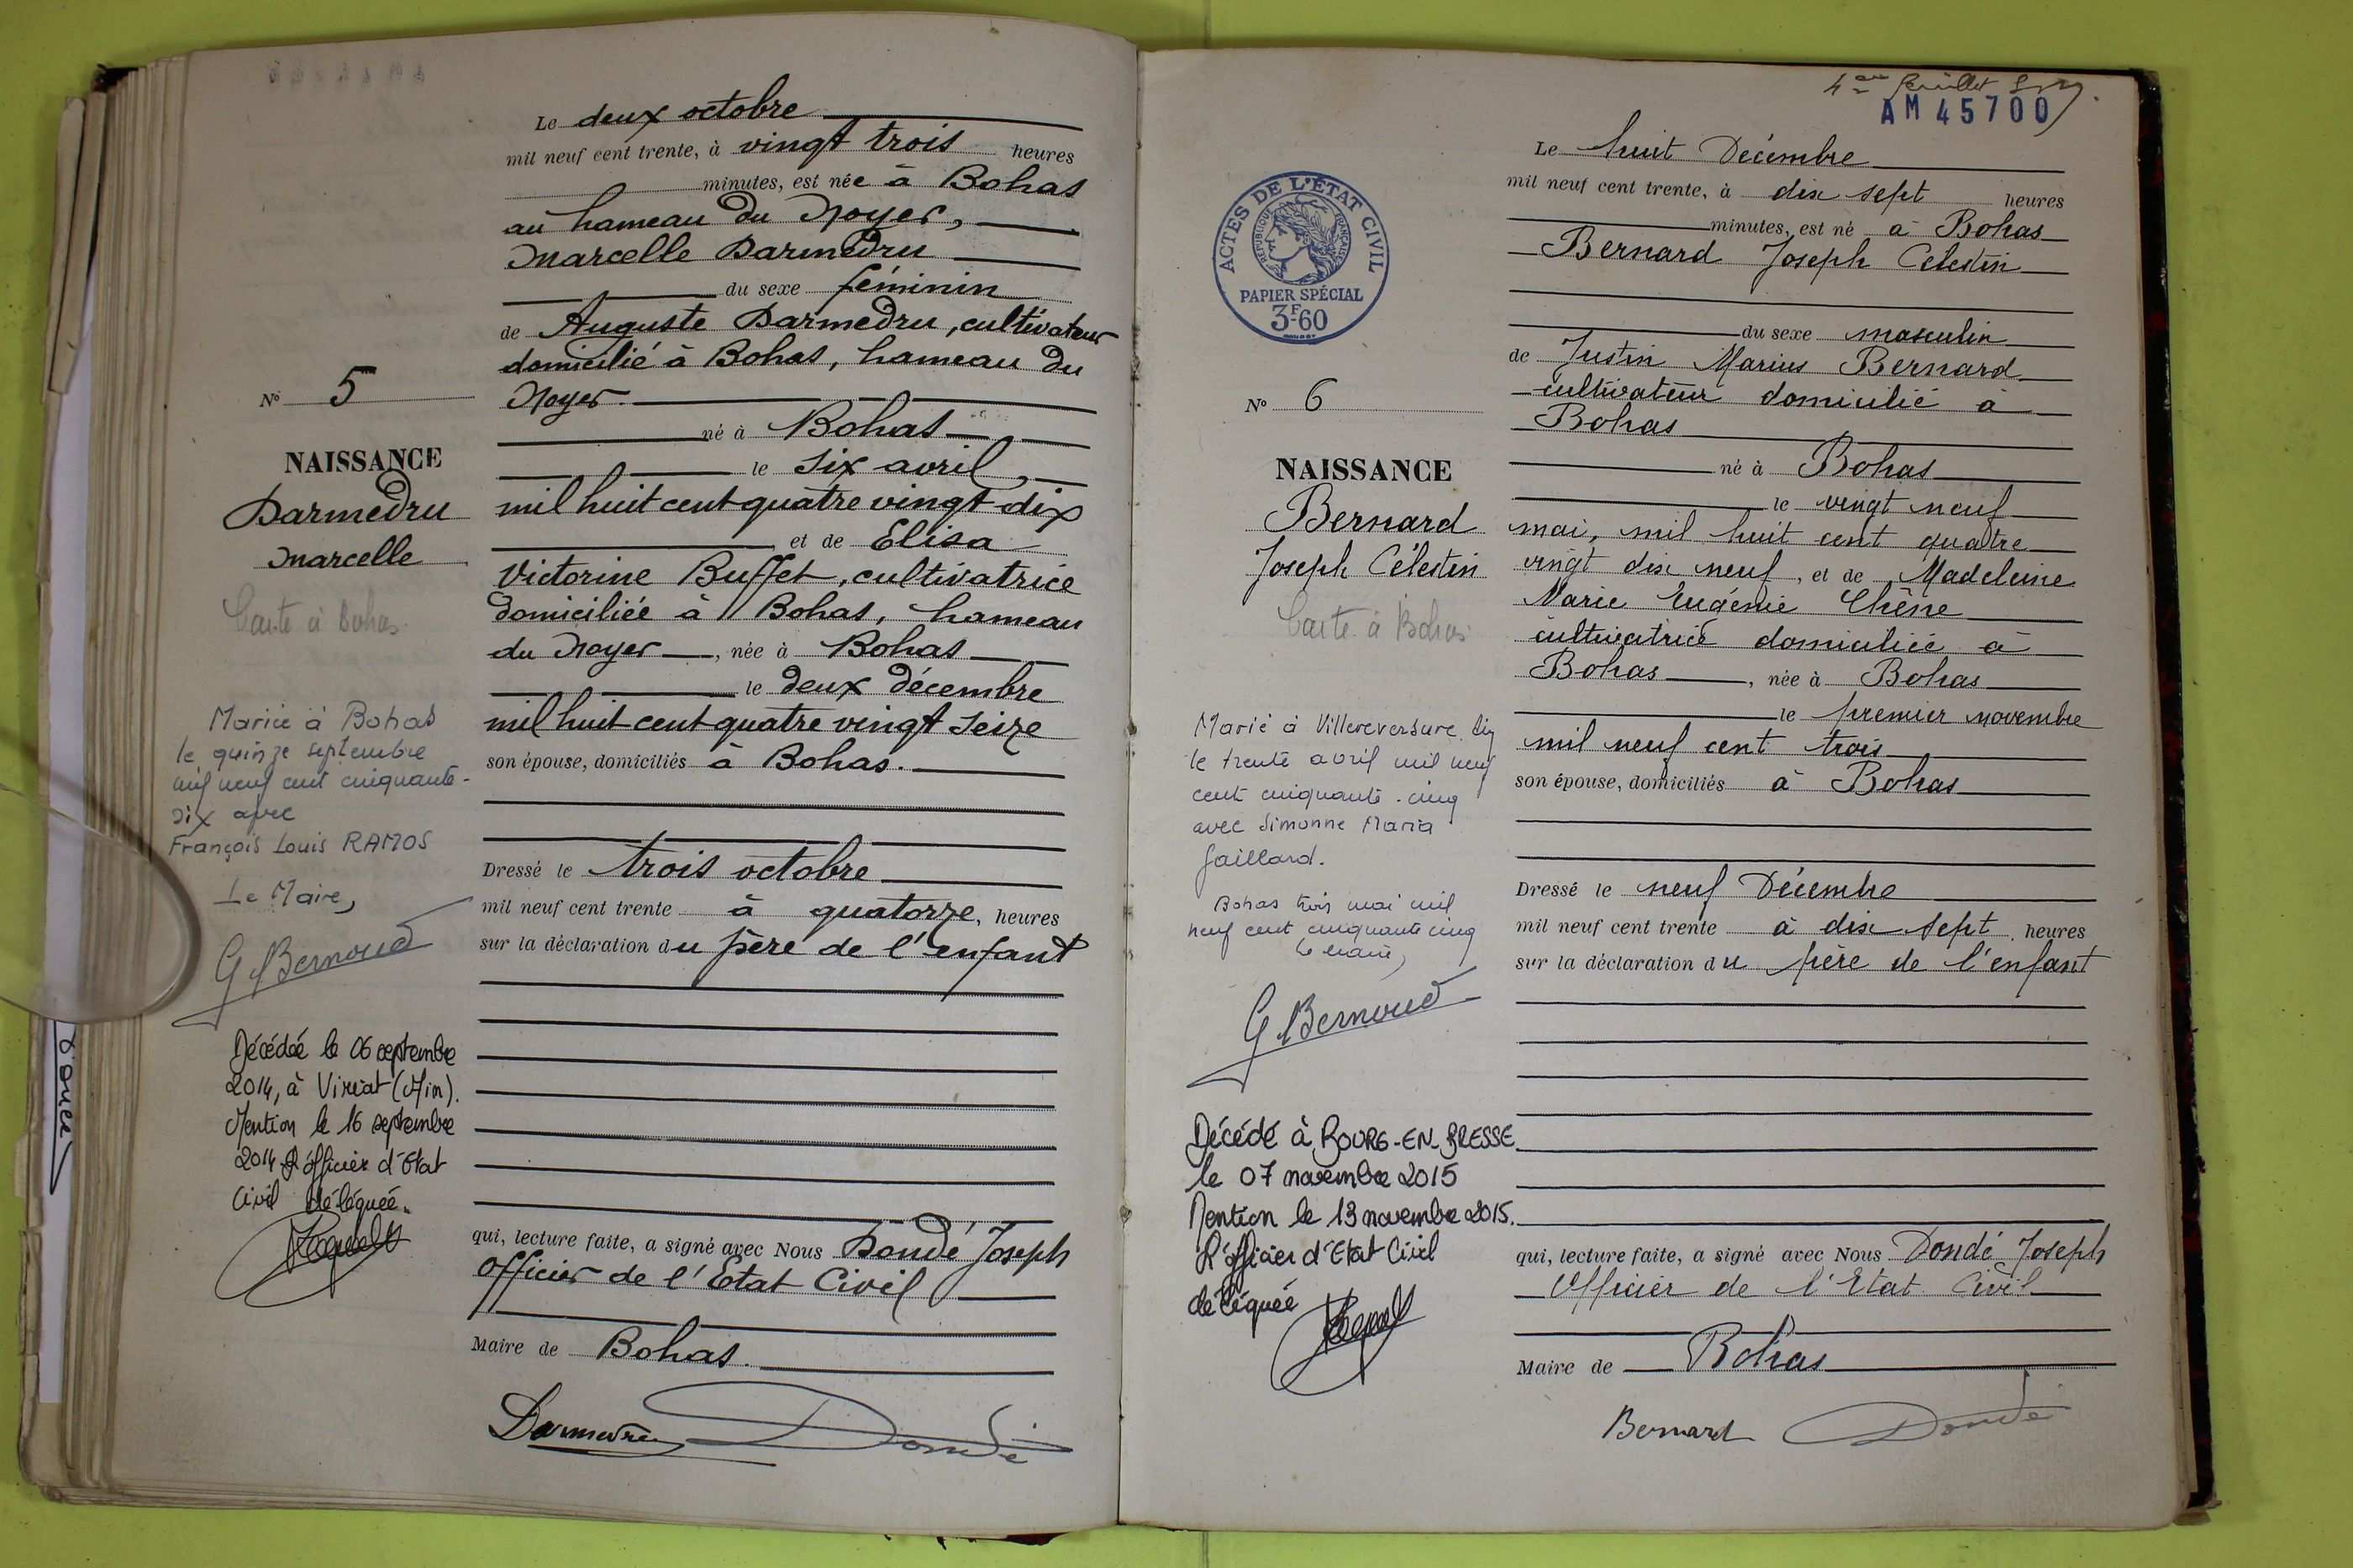 Le deux octobre
mil neuf cent trente, à vingt trois heures
minutes, est née à Bohas
au hameau du Noyer,
Marcelle Darmedru
du sexe féminin
de Auguste Darmedru, cultivateur
domicilié à Bohas, hameau du
Noyer.
né à Bohas
le six avril
mil huit cent quatre vingt dix
et de Elisa
Victorine Buffet, cultivatrice
domiciliée à Bohas, hameau
du Noyer, née à Bohas
le deux décembre
mil huit cent quatre vingt seize
son épouse, domiciliés à Bohas.
Dressé le trois octobre
mil neuf cent trente à quatorze, heures
sur la déclaration du père de l'enfant
qui, lecture faite, a signé avec Nous Dondé Joseph
Officier de l'Etat Civil
Maire de Bohas.
Darmedru Dondé
N° 5
NAISSANCE
Darmedru
Marcelle
Carte à Bohas
Mariée à Bohas
le quinze septembre
mil neuf cent cinquante-
six avec
François Louis RAMOS
Le Maire,
G Bernoud
Décédée le 06 septembre
2014, à Viriat (Ain).
Mention le 16 septembre
2014 L'officier d'Etat
Civil déléguée.
4me feuillet
AM 45700
ACTES DE L'ÉTAT CIVIL
RÉPUBLIQUE FRANÇAISE
PAPIER SPÉCIAL
3F60
N° 6
NAISSANCE
Bernard
Joseph Célestin
Carte à Bohas
Marié à Villereversure
le trente avril mil neuf
cent cinquante-cinq
avec Simonne Maria
Gaillard.
Bohas trois mai mil
neuf cent cinquante cinq
Le maire,
G Bernoud
Décédé à BOURG-EN-BRESSE
le 07 novembre 2015
Mention le 13 novembre 2015.
L'officier d'Etat Civil
déléguée
Le huit Décembre
mil neuf cent trente, à dix sept heures
minutes, est né à Bohas
Bernard Joseph Célestin
du sexe masculin
de Justin Marius Bernard
cultivateur domicilié à
Bohas
né à Bohas
le vingt neuf
mai, mil huit cent quatre
vingt dix neuf, et de Madeleine
Marie Eugénie Chêne
cultivatrice domiciliée à
Bohas, née à Bohas
le premier novembre
mil neuf cent trois
son épouse, domiciliés à Bohas
Dressé le neuf Décembre
mil neuf cent trente à dix sept heures
sur la déclaration du père de l'enfant
qui, lecture faite, a signé avec Nous Dondé Joseph
Officier de l'Etat Civil
Maire de Bohas
Bernard Dondé